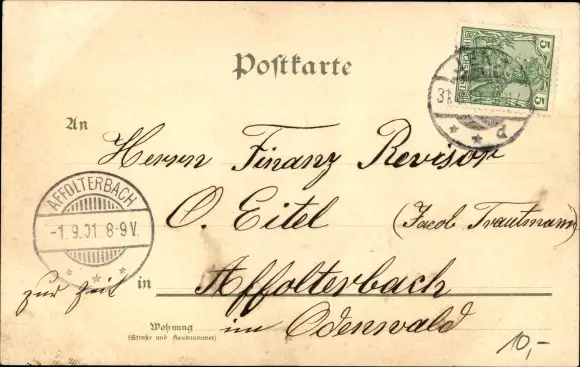 Postkarte
5
REICHSPOST
5
31.
d
An
Herrn Finanz Revisor
O. Eitel (Jacob Trautmann)
AFFOLTERBACH
-1.9.01 8-9V.
zur Zeit in Affolterbach
im Odenwald
Wohnung
(Straße und Hausnummer)
10,-